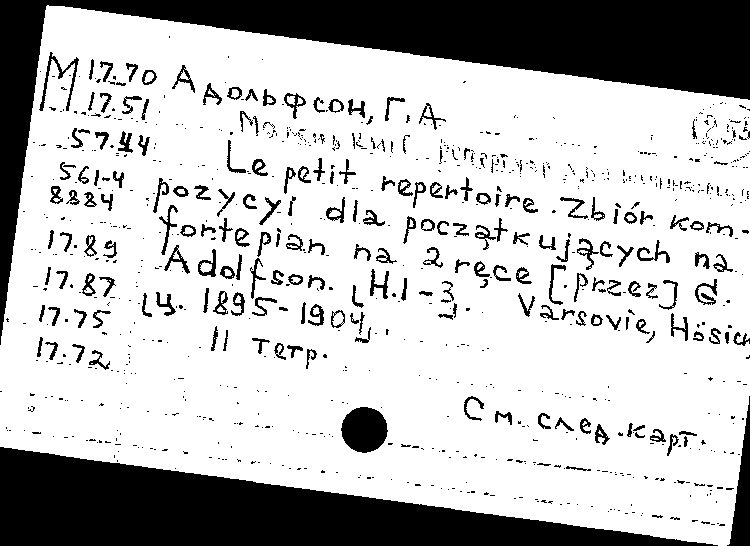 М 17.70 Адольфсон, Г. А
17.51
1853
57.44
Маленький репертуар для начинающих
561-4 Le petit repertoire. Zbiór kom-
8884 pozycyi dla początkujących na
17.89 fortepian na 2 ręce [przez] G.
17.87 Adolfson. [H.1-3]. Varsovie, Hösick,
17.75 [ц. 1895-1904].
17.72 11 тетр.
См. след. карт.